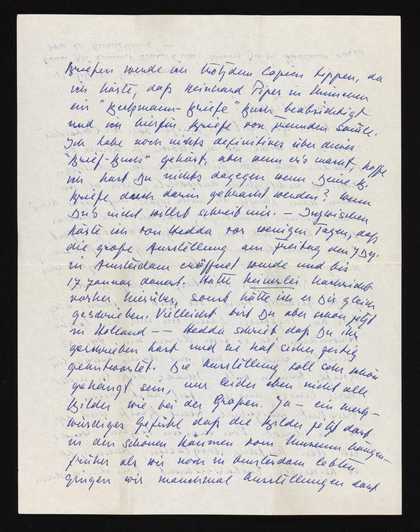 Briefen werde ich trotzdem Copien tippen, da
ich hörte, daß Reinhard Piper in München
ein "Beckmann-Briefe" Buch beabsichtigt
und ich hierfür Briefe von Freunden samle.
Ich habe noch nichts definitives über dieses
"Brief-Buch" gehört, aber wenn er's macht, hoffe
ich hast Du nichts dagegen wenn Deine B.
Briefe auch darin gebracht werden? Wenn
Du's nicht willst schreib mir. — Inzwischen
hörte ich von Hedda vor wenigen Tagen, daß
die große Ausstellung am Freitag den 7 Dez.
in Amsterdam eröffnet wurde und bis
17 Januar dauert. Hatte keinerlei Nachricht
vorher hierüber, sonst hätte ich es Dir gleich
geschrieben. Vielleicht bist Du aber schon jetzt
in Holland — — Hedda schreibt daß Du ihr
geschrieben hast und sie hat sicher sofort
geantwortet. Die Ausstellung soll sehr schön
gehängt sein, nur leider eben nicht alle
Bilder wie bei der Großen. Ja — ein merk-
würdiges Gefühl daß die Bilder jetzt dort
in den schönen Räumen vom Museum hängen-
früher als wir noch in Amsterdam lebten
gingen wir manchmal Ausstellungen dort